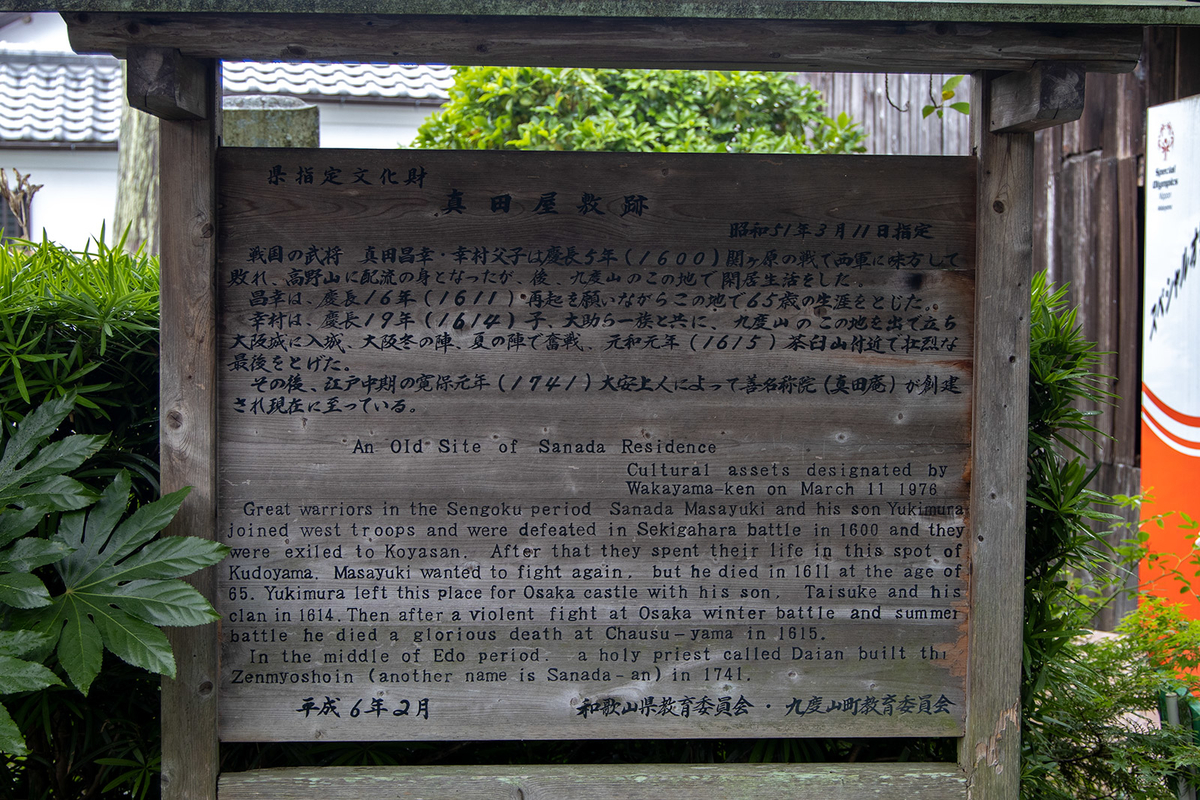 県指定文化財
真田屋敷跡
昭和51年3月11日指定
戦国の武将 真田昌幸・幸村父子は慶長5年(1600)関ヶ原の戦で西軍に味方して
敗れ、高野山に配流の身となったが、後、九度山のこの地で閑居生活をした。
昌幸は、慶長16年(1611)再起を願いながらこの地で65歳の生涯をとじた。
幸村は、慶長19年(1614)子、大助ら一族と共に、九度山のこの地を出て立ち
大阪城に入城、大阪冬の陣、夏の陣で奮戦、元和元年(1615)茶臼山付近で壮烈な
最後をとげた。
その後、江戸中期の寛保元年(1741)大安上人によって善名称院(真田庵)が創建
され現在に至っている。
An Old Site of Sanada Residence
Cultural assets designated by
Wakayama-ken on March 11 1976
Great warriors in the Sengoku period Sanada Masayuki and his son Yukimura
joined west troops and were defeated in Sekigahara battle in 1600 and they
were exiled to Koyasan. After that they spent their life in this spot of
Kudoyama. Masayuki wanted to fight again, but he died in 1611 at the age of
65. Yukimura left this place for Osaka castle with his son, Taisuke and his
clan in 1614. Then after a violent fight at Osaka winter battle and summer
battle he died a glorious death at Chausu-yama in 1615.
In the middle of Edo period, a holy priest called Daian built thi
Zenmyoshoin (another name is Sanada-an) in 1741.
平成6年2月
和歌山県教育委員会・九度山町教育委員会
Special
Olympics
スペシャルオ